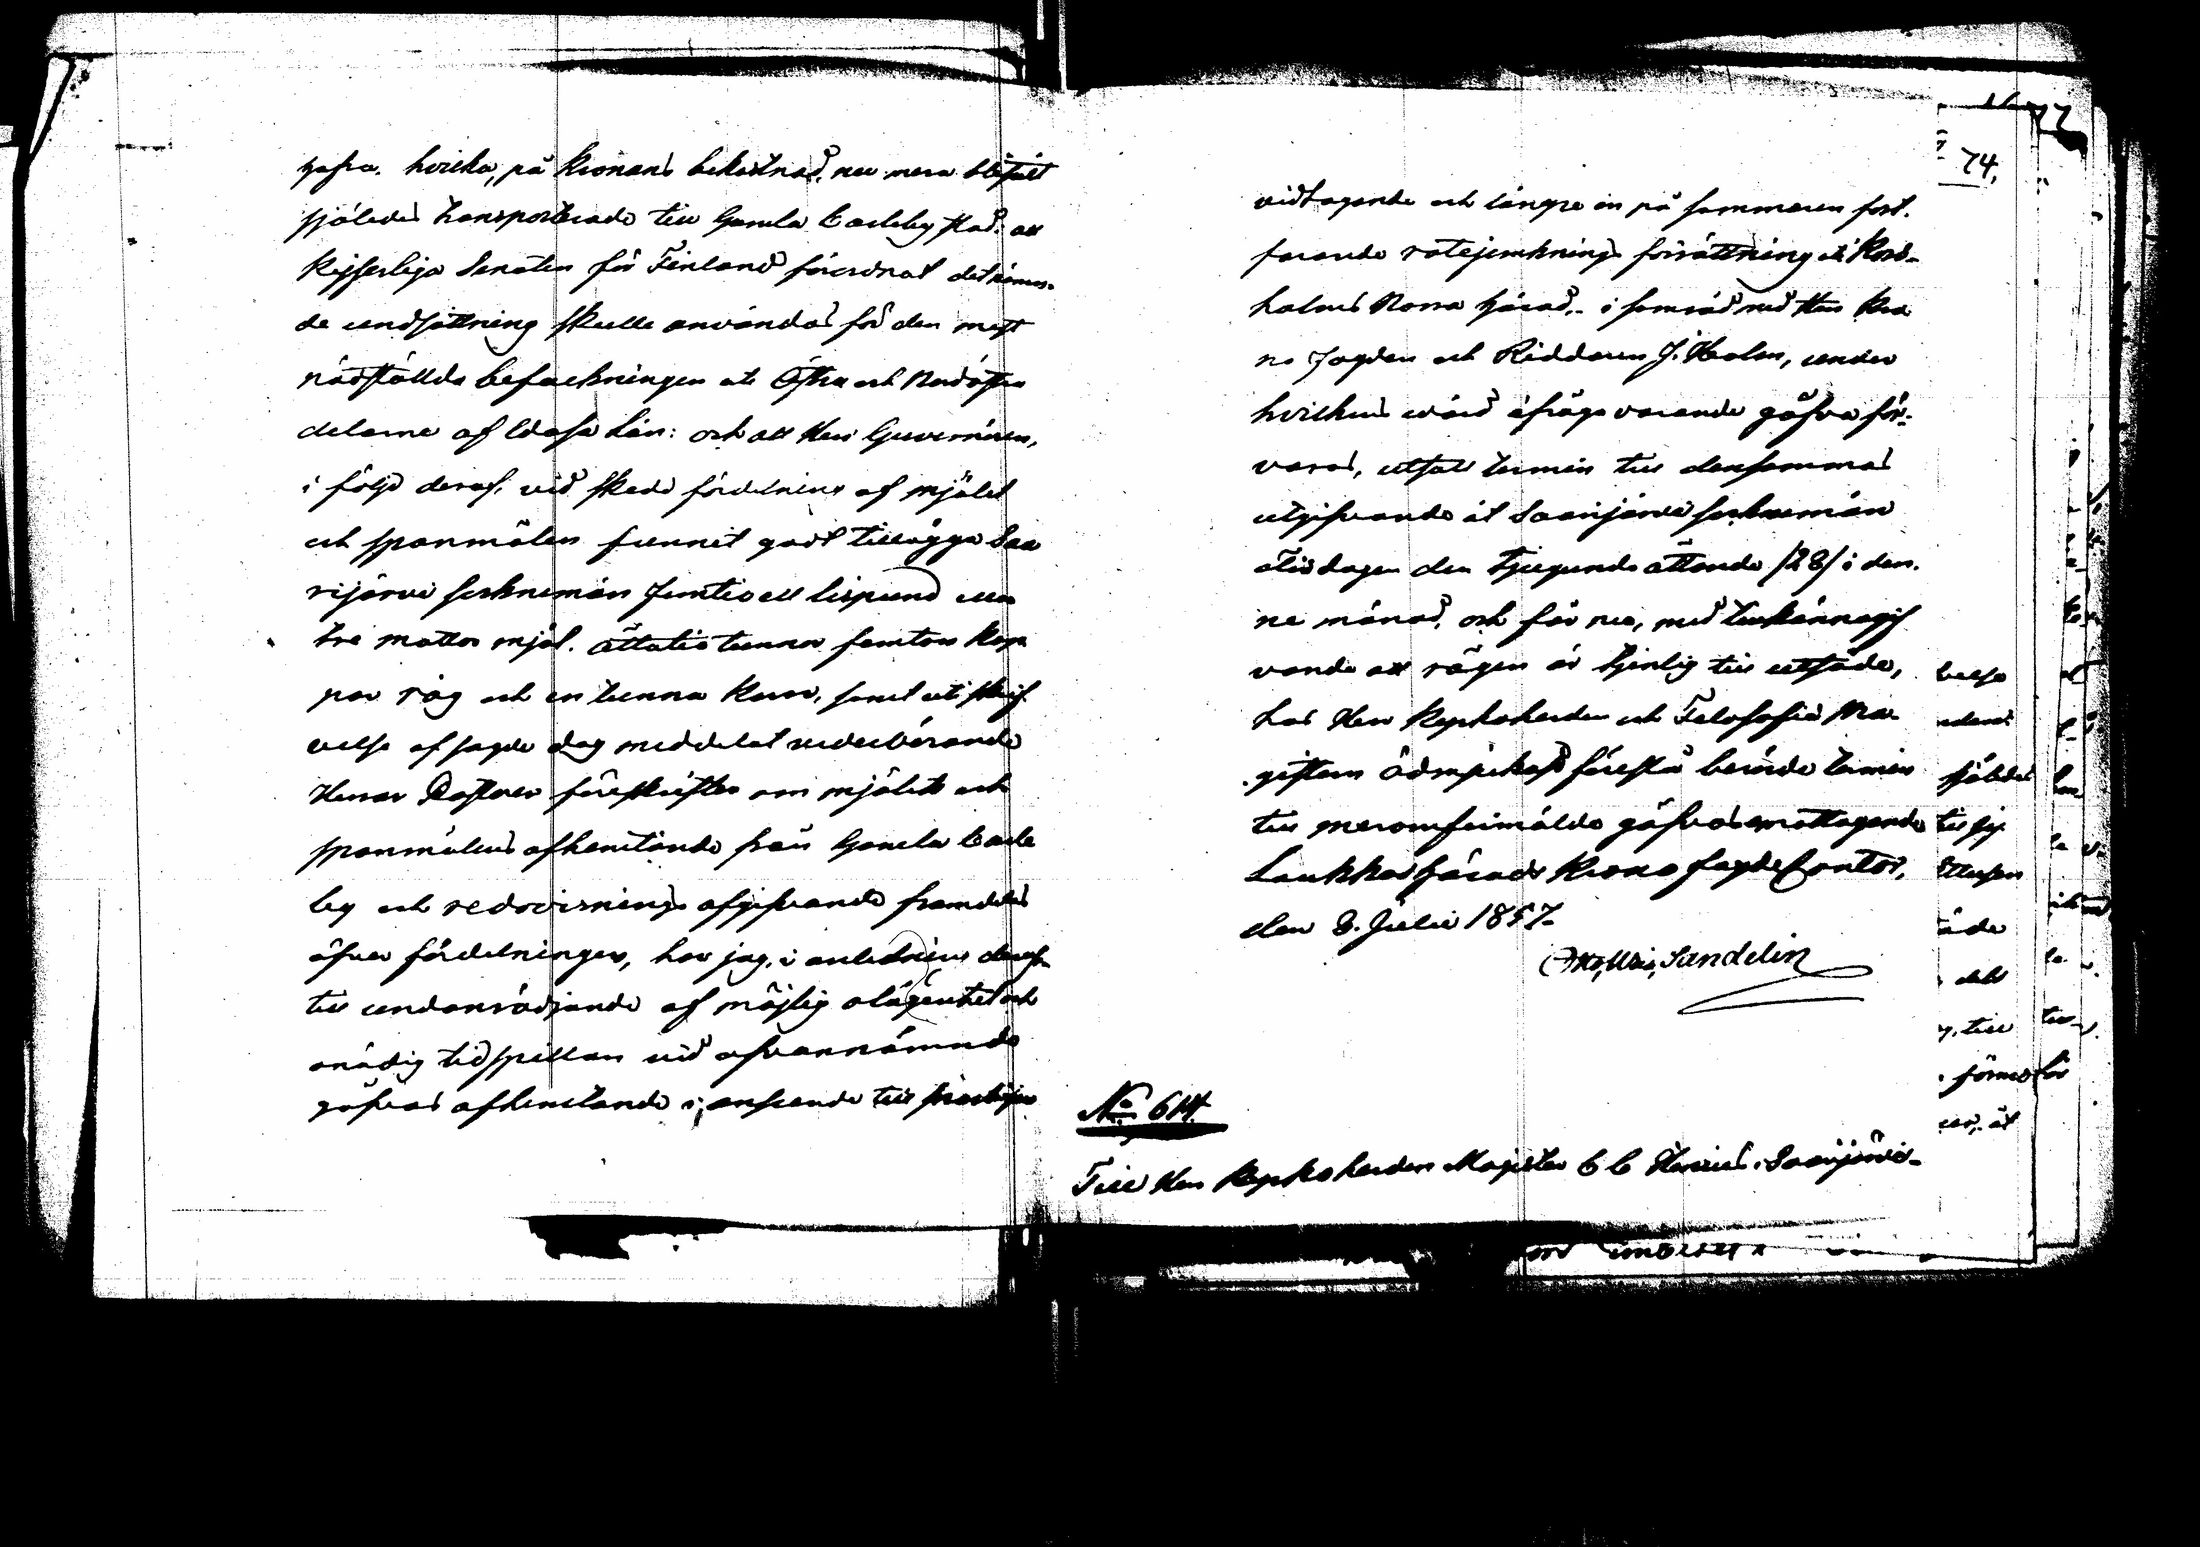 gåfva. hvilka, på Kronans bekostnad, nu mera blifvit
sjöledes transporterade till Gamla Carleby stad: att
Kejserliga Senaten för Finland förordnat det
de undsättning skulle användas för den mest
nödställda befolkningen uti Östra och Nordöstra
delarne af Wasa Län: och att Herr Guvernören,
i följd deraf, vid skedd fördelning af mjölet
och spanmålen funnit godt tillägga Saa
rijärvi socknemän femtio ett lispund eller
tre mattor mjöl. åttatio tunnor femton kap
par råg och en tunna korn, samt uti skrif
velse af sagde dag meddelat vederbörande
Herrar Pastorer föreskrifter om mjölets och
spanmålens afhemtande från Gamla Carle
by och redovisnings afgifvande framdeles
öfver fördelningen, har jag, i anledning deraf
till undanrödjande af möjlig olägenhet och
onödig tidspillan vid ofvannämnde
gåfvas afhemtande i anseende till
74.
vidtagande och längre in på sommaren fort-
farande rotejemknings förrättning uti Kors-
holms Norra härad, i samråd med Herr Kro
no Fogden och Riddaren J. Holm, under
hvilkens vård ifråga varande gåfva för-
varas, utsatt termin till densammas
utgifvande åt Saarijärvi sockneman
Tisdagen den tjugunde åttonde /28/ i den-
ne månad, och får nu, med tillkännagif
vande att rågen är tjenlig till utsäde,
hos Herr Kyrkoherden och Filosofie Ma-
gistern ödmjukast föreslå berörde termin
till meromförmälde gåfvas emottagande
Laukkas härads Krono fogde Contor,
den 8. Julii 1857.
Otto Wm. Sandelin
No. 614.
Till Herr Kyrkoherden Magister C C i Saarijärvi.